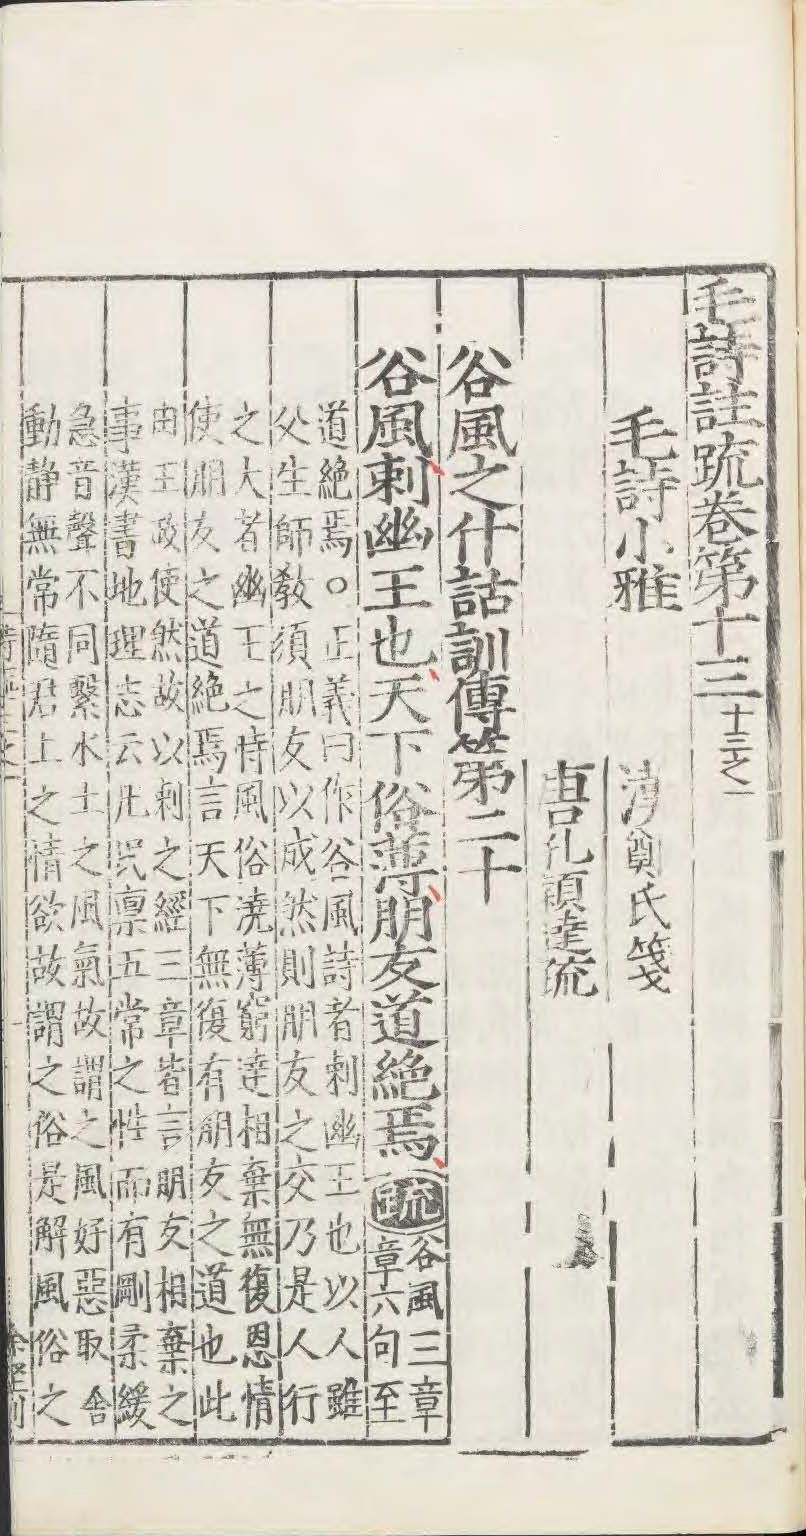 毛詩註疏卷第十三 十三之一
毛詩小雅
漢鄭氏箋
唐孔穎達疏
谷風之什詁訓傳第二十
谷風刺幽王也天下俗薄朋友道絶焉 疏 谷風三章
章六句至
道絶焉○正義曰作谷風詩者刺幽王也以人雖
父生師教須朋友以成然則朋友之交乃是人行
之大者幽王之時風俗澆薄窮達相棄無復恩情
使朋友之道絶焉言天下無復有朋友之道也此
由王政使然故以刺之經三章皆言朋友相棄之
事漢書地理志云凡民禀五常之性而有剛柔緩
急音聲不同繫水土之風氣故謂之風好惡取舍
動静無常隨君上之情欲故謂之俗是解風俗之